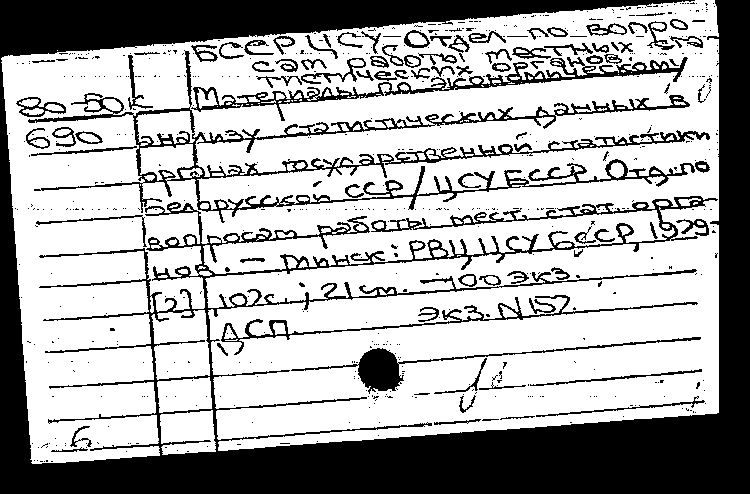 БССР. ЦСУ. Отдел по вопро-
сам работы местных ста-
тистических органов.
80-50к Материалы по экономическому
690 анализу статистических данных в
органах государственной статистики
Белорусской ССР / ЦСУ БССР, Отд. по
вопросам работы мест. стат. орга-
нов. — Минск: РВЦ ЦСУ БССР, 1979.
[2], 107с.; 21см. — 100 экз.
ДСП. Экз. N 157.
6